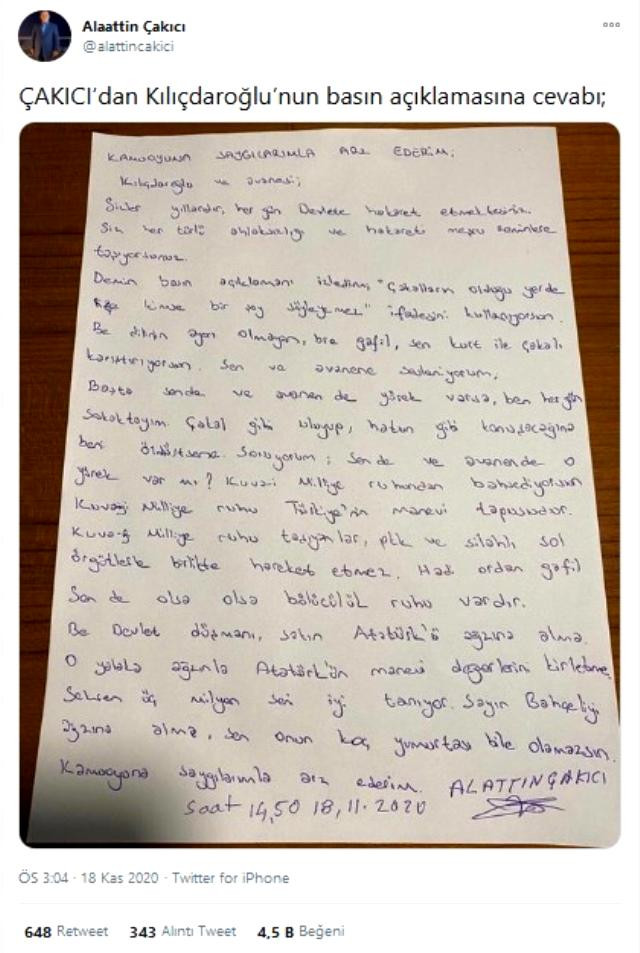 Alaattin Çakıcı
@alattincakici
ÇAKICI'dan Kılıçdaroğlu'nun basın açıklamasına cevabı;
KAMUOYUNA SAYGILARIMLA ARZ EDERİM;
Kılıçdaroğlu ve avanesi;
Sizler yıllardır, her gün Devlete hakaret etmektesiniz.
Siz her türlü ahlaksızlığı ve hakareti meşru
taşıyorsunuz.
Demin basın açıklamanı izledim, "Çakalların olduğu yerde
kimse bir şey söyleyemez" ifadesini kullanıyorsun.
Be dilinin ayarı olmayan, bre gafil, sen kurt ile çakalı
karıştırıyorsun. Sen ve avanene sesleniyorum,
Başta sende ve avanen de yürek varsa, ben her gün
sokaktayım. Çakal gibi uluyup, hatun gibi konuşacağına
beni öldürtsene. Soruyorum; sen de ve avanende o
yürek var mı? Kuva-i Milliye ruhundan bahsediyorsun
Kuvayi Milliye ruhu Türkiye'nin manevi tapusudur.
Kuva-yi Milliye ruhu taşıyanlar, pkk ve silahlı sol
örgütlerle birlikte hareket etmez. Hadi ordan gafil
Sen de olsa olsa bölücülük ruhu vardır.
Be Devlet düşmanı, sakın Atatürk'ü ağzına alma.
O ağzınla Atatürk'ün manevi değerlerini kirletme.
Seksen üç milyon seni iyi tanıyor. Sayın Bahçeliyi
ağzına alma, sen onun koç yumurtası bile olamazsın.
Kamuoyuna saygılarımla arz ederim. ALATTİN ÇAKICI
Saat 14,50 18,11.2020
ÖS 3:04 · 18 Kas 2020 · Twitter for iPhone
648 Retweet 343 Alıntı Tweet 4,5 B Beğeni